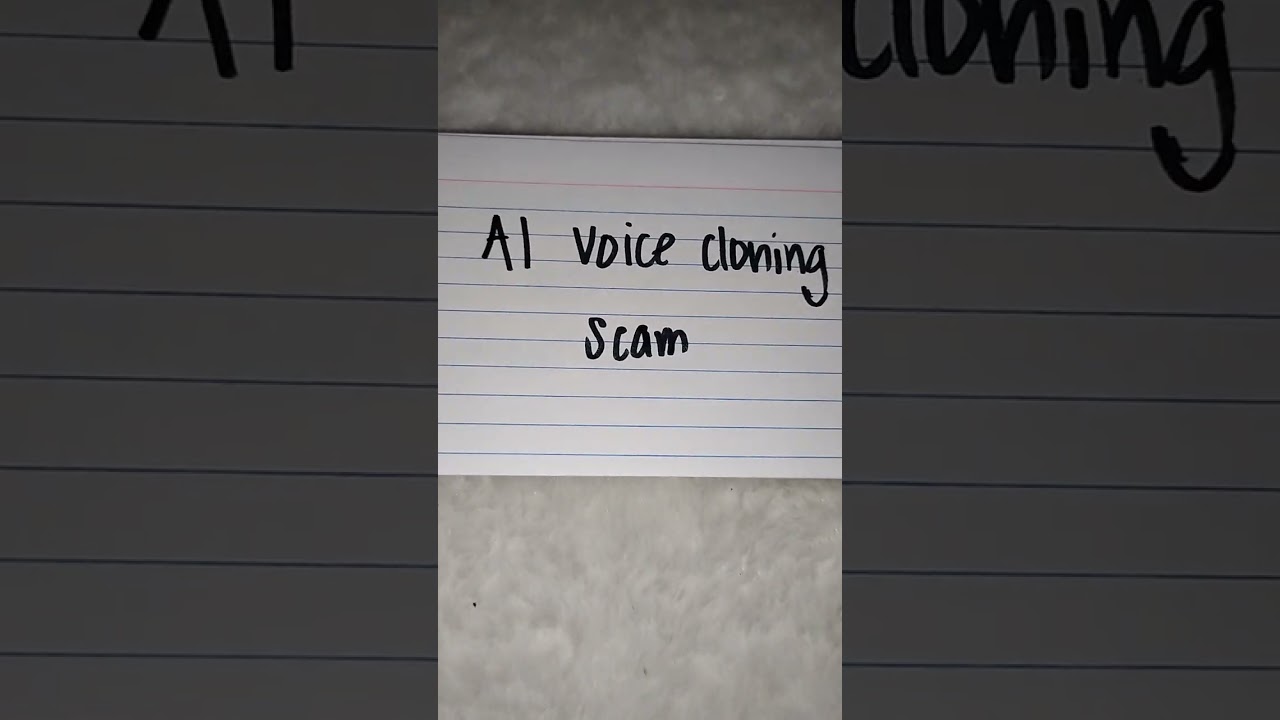 AI voice cloning
scam